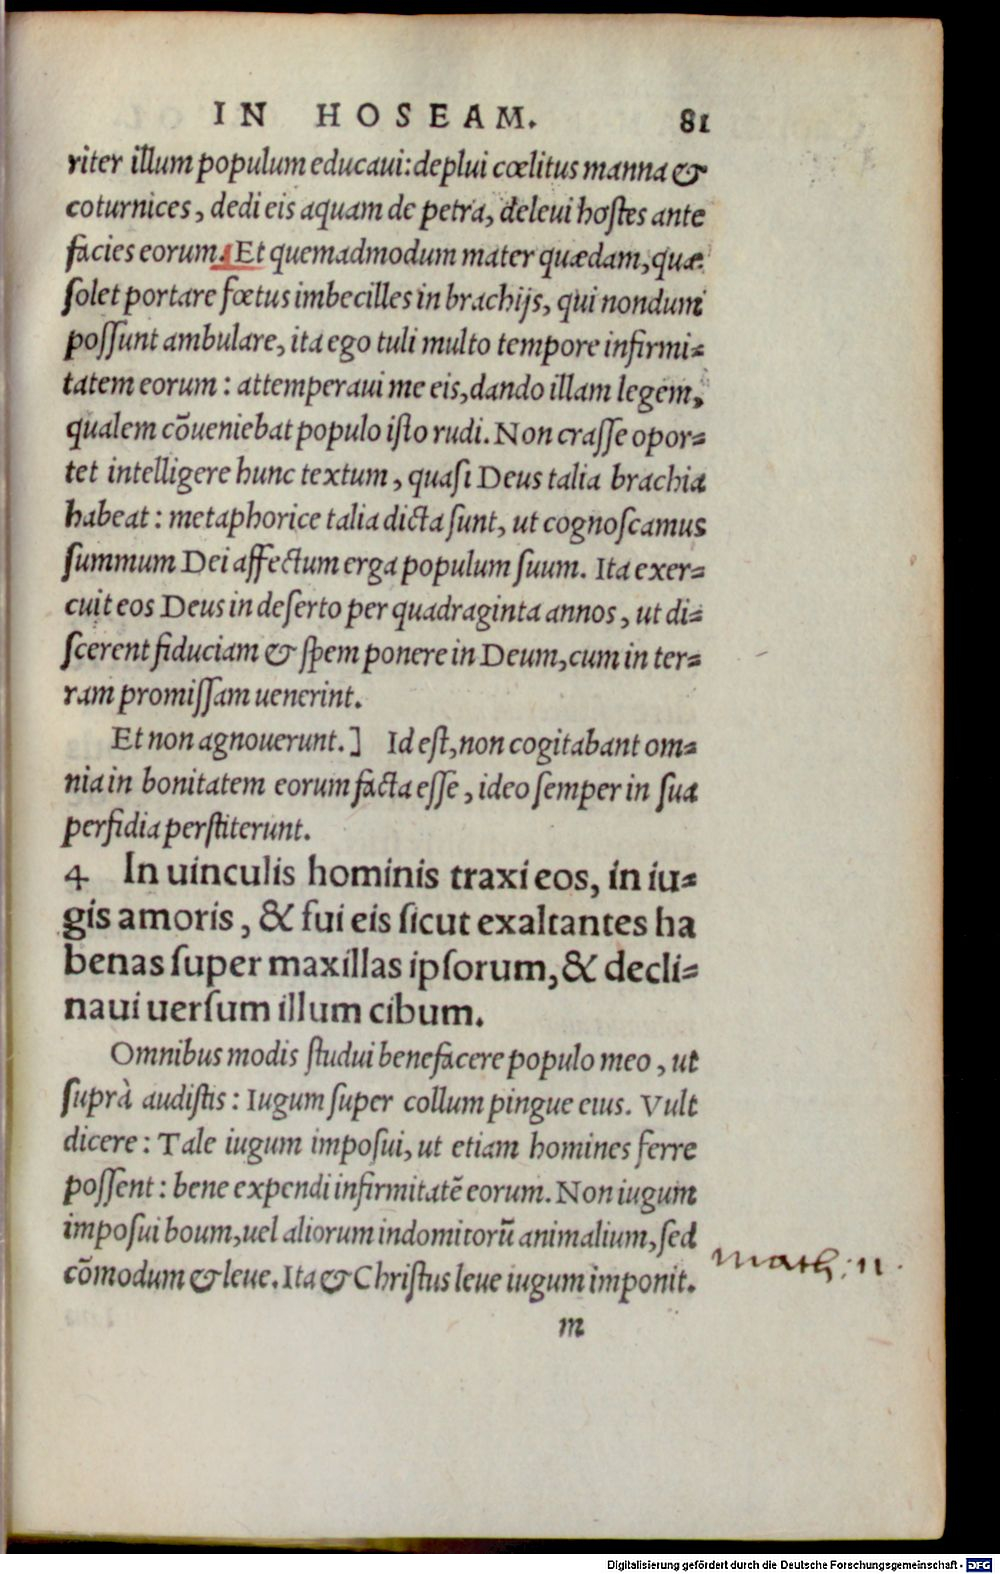 IN HOSEAM. 81
riter illum populum educaui: deplui cœlitus manna &
coturnices, dedi eis aquam de petra, deleui hostes ante
facies eorum. Et quemadmodum mater quædam, quæ
solet portare fœtus imbecilles in brachijs, qui nondum
possunt ambulare, ita ego tuli multo tempore infirmi=
tatem eorum: attemperaui me eis, dando illam legem,
qualem cōueniebat populo isto rudi. Non crasse opor=
tet intelligere hunc textum, quasi Deus talia brachia
habeat: metaphorice talia dicta sunt, ut cognoscamus
summum Dei affectum erga populum suum. Ita exer=
cuit eos Deus in deserto per quadraginta annos, ut di=
scerent fiduciam & spem ponere in Deum, cum in ter=
ram promissam uenerint.
Et non agnouerunt.] Id est, non cogitabant om=
nia in bonitatem eorum facta esse, ideo semper in sua
perfidia perstiterunt.
4 In uinculis hominis traxi eos, in iu=
gis amoris, & fui eis sicut exaltantes ha
benas super maxillas ipsorum, & decli=
naui uersum illum cibum.
Omnibus modis studui benefacere populo meo, ut
suprà audistis: Iugum super collum pingue eius. Vult
dicere: Tale iugum imposui, ut etiam homines ferre
possent: bene expendi infirmitatē eorum. Non iugum
imposui boum, uel aliorum indomitorū animalium, sed
cōmodum & leue. Ita & Christus leue iugum imponit.
math: 11.
m
Digitalisierung gefördert durch die Deutsche Forschungsgemeinschaft - DFG